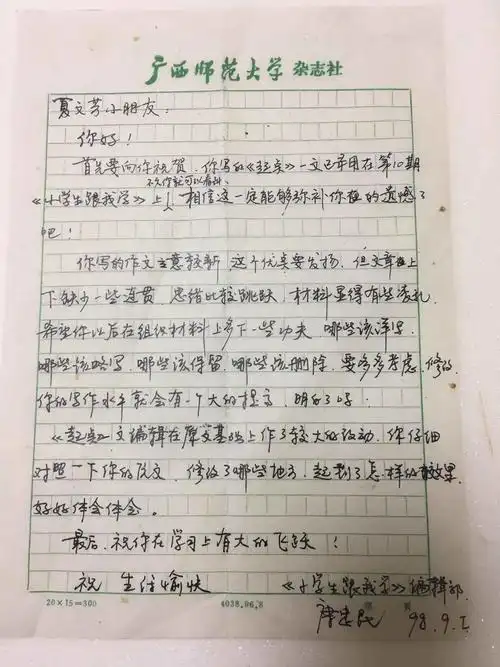 广西师范大学 杂志社
夏文芳小朋友：
你好！
首先要向你祝贺，你写的《起点》一文已采用在第10期
不久你就可以看到，
《小学生跟我学》上，相信这一定能够弥补你在的遗憾了
吧！
你写的作文立意较新，这个优点要发扬，但文章在上
下缺少一些连贯，思绪比较跳跃，材料显得有些凌乱，
希望你以后在组织材料上多下一些功夫，哪些该详写
哪些该略写，哪些该保留，哪些该删除，要多多考虑，修改，
你的写作水平就会有一个大的提高，明白了吗？
《起点》文编辑在原文基础上作了较大的改动，你仔细
对照一下你的作文，修改了哪些地方，起到了怎样的效果，
好好体会体会。
最后，祝你在学习上有大的飞跃！
祝 生活愉快
《小学生跟我学》编辑部
20×15=300 4038.96.8
98.9.1